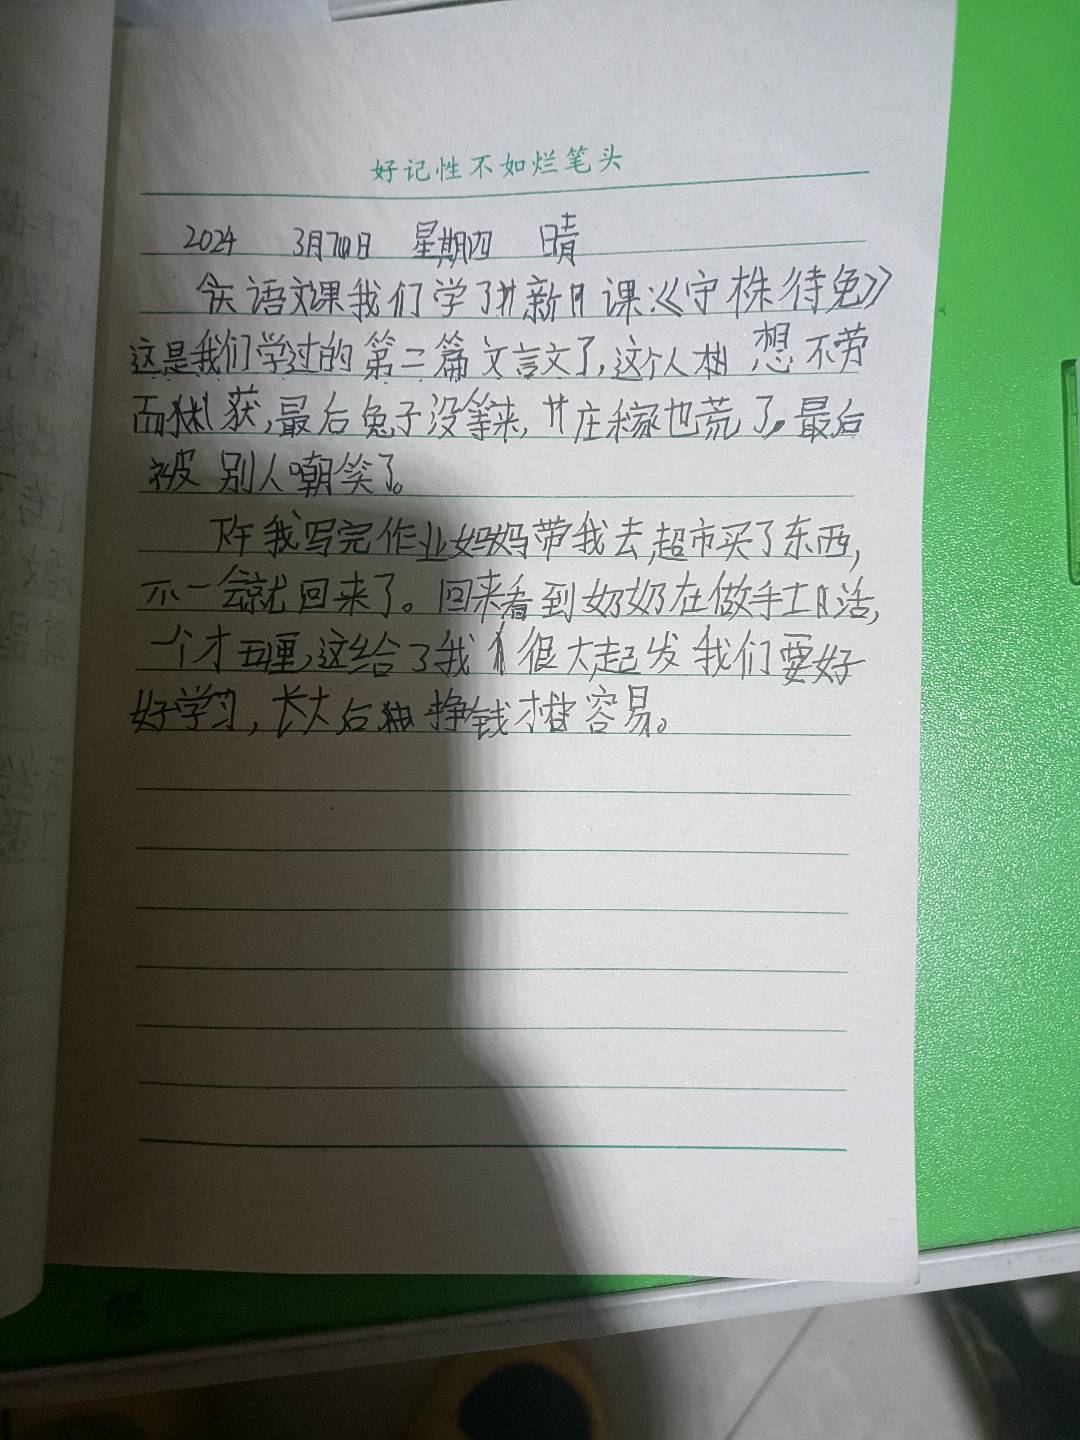 好记性不如烂笔头
2024 3月7日 星期四 晴
今天语文课我们学了新课:《守株待兔》
这是我们学过的第二篇文言文了,这个人想不劳
而获,最后兔子没等来,庄稼也荒了。最后
被别人嘲笑了。
下午我写完作业妈妈带我去超市买了东西,
不一会就回来了。回来看到奶奶在做手工活,
一个才五厘,这给了我很大起发我们要好
好学习,长大后挣钱才容易。